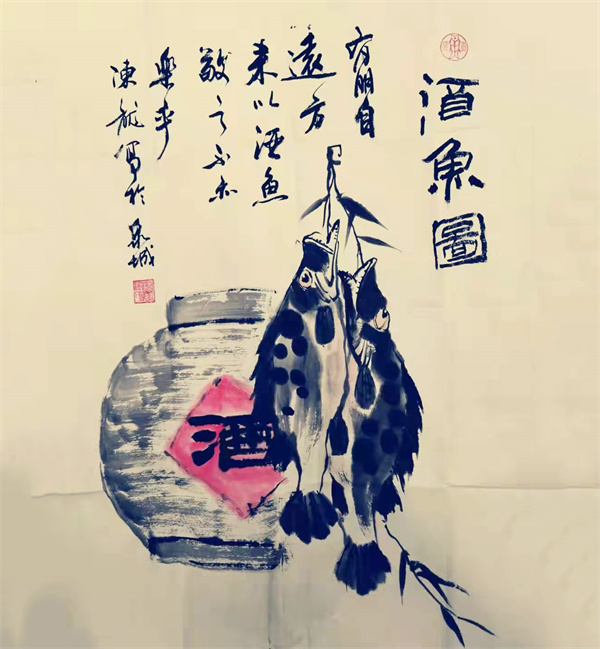 酒魚圖
有朋自
遠方
来以酒魚
敬之不亦
樂乎
陳龍寫於泉城
酒